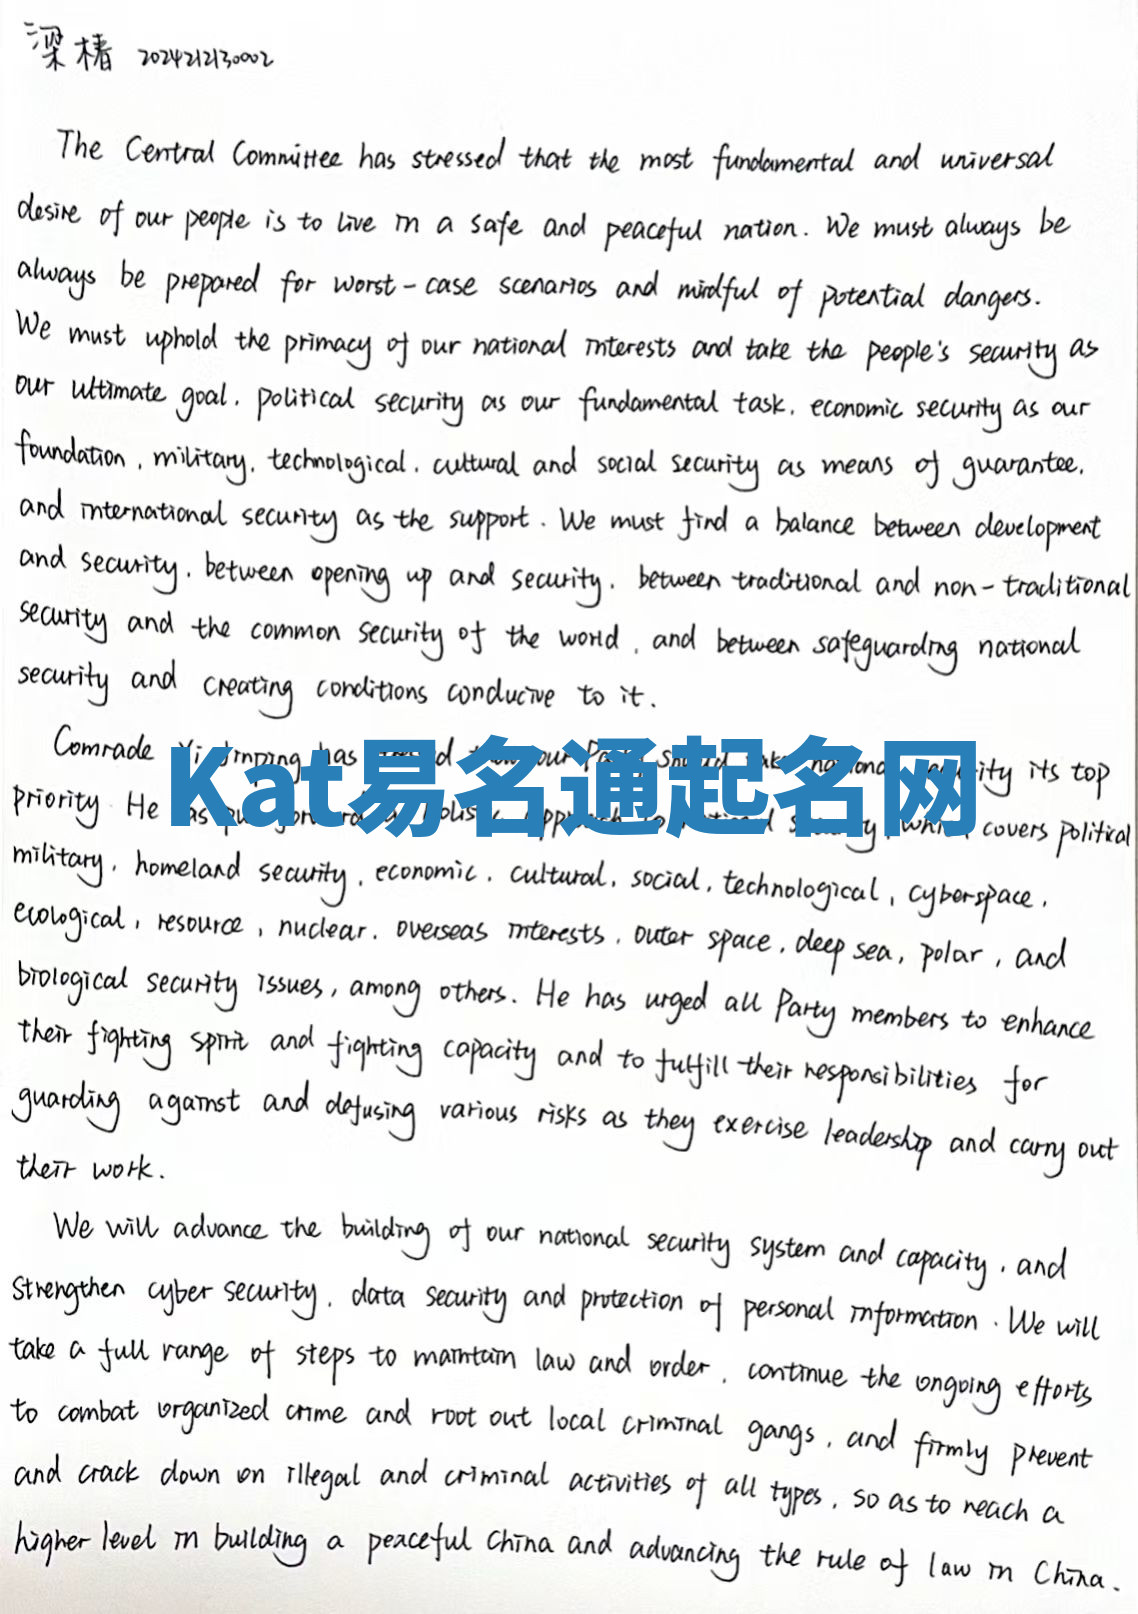 梁椿 2024212130002
The Central Committee has stressed that the most fundamental and universal
desire of our people is to live in a safe and peaceful nation. We must always be
always be prepared for worst-case scenarios and mindful of potential dangers.
We must uphold the primacy of our national interests and take the people's security as
our ultimate goal, political security as our fundamental task, economic security as our
foundation, military, technological, cultural and social security as means of guarantee,
and international security as the support. We must find a balance between development
and security, between opening up and security, between traditional and non-traditional
security and the common security of the world, and between safeguarding national
security and creating conditions conducive to it.
Comrade Jinping has our its top
Kat易名通起名网
priority. He has covers political
military, homeland security, economic, cultural, social, technological, cyberspace,
ecological, resource, nuclear, overseas interests, outer space, deep sea, polar, and
biological security issues, among others. He has urged all Party members to enhance
their fighting spirit and fighting capacity and to fulfill their responsibilities for
guarding against and defusing various risks as they exercise leadership and carry out
their work.
We will advance the building of our national security system and capacity, and
strengthen cyber security, data security and protection of personal information. We will
take a full range of steps to maintain law and order, continue the ongoing efforts
to combat organized crime and root out local criminal gangs, and firmly prevent
and crack down on illegal and criminal activities of all types, so as to reach a
higher level in building a peaceful China and advancing the rule of law in China.